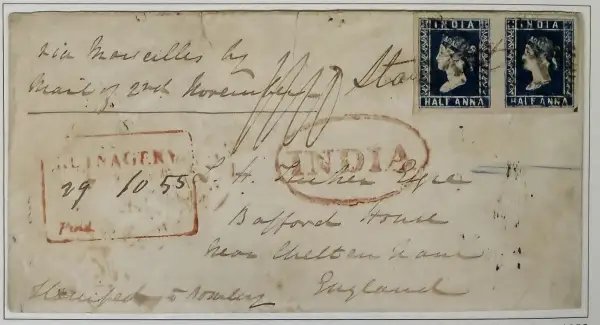 via Marseilles by
Mail of 2nd November
INDIA
HALF ANNA
INDIA
HALF ANNA
RUTNAGERY
29 10 55
Paid
INDIA
H. Tucker Esqre
Bafford House
Near Cheltenham
England
to Bombay